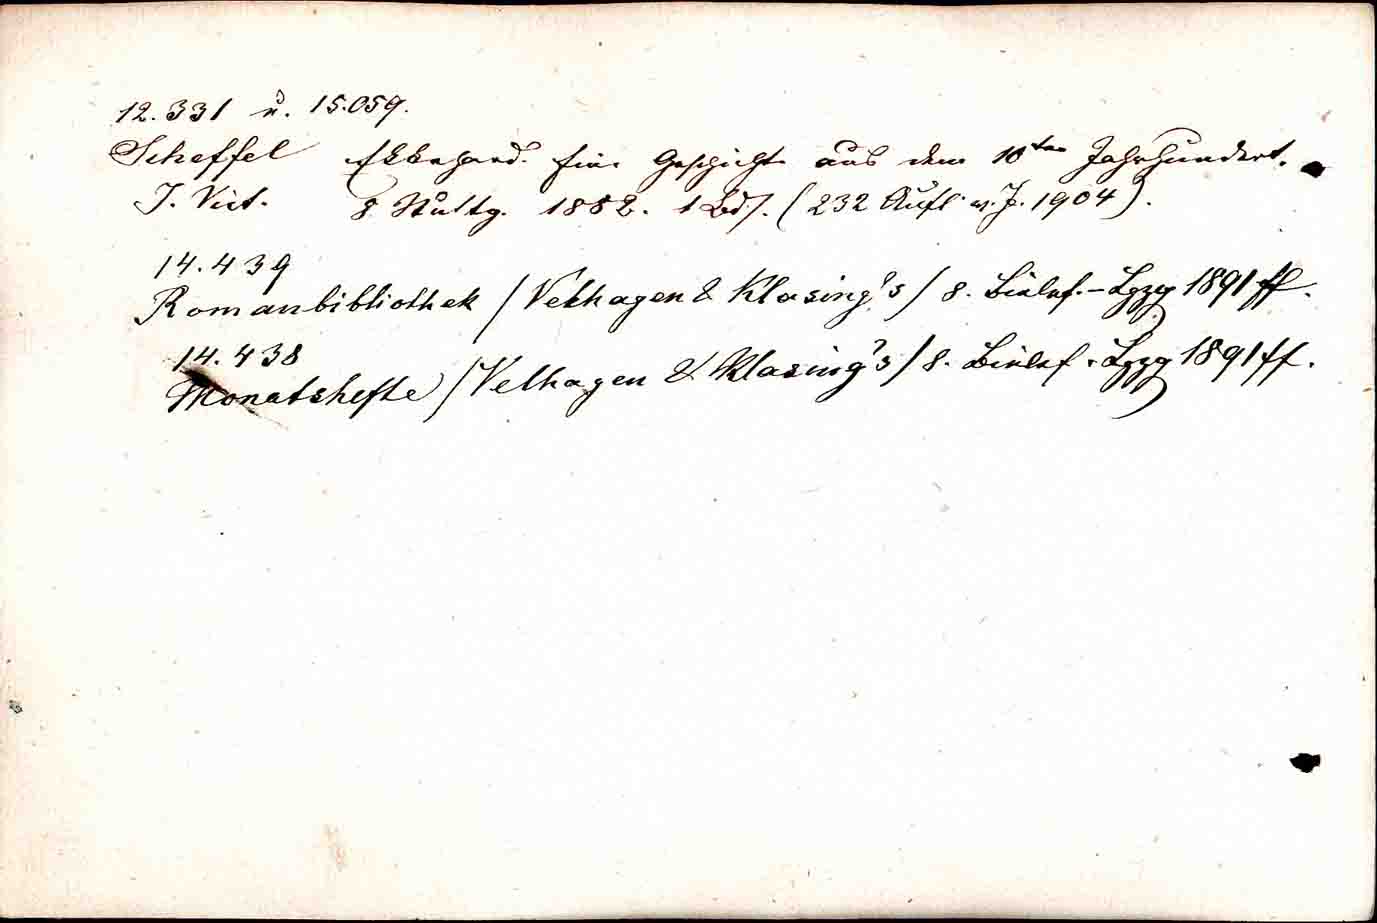 12.331 u. 15.059.
Scheffel Ekkehard. Eine Geschichte aus dem 10ten Jahrhundert.
J. Vict. 8. Stuttg. 1882. 1 Bd. (232 Aufl. v. J. 1904).
14.439
Romanbibliothek /Velhagen & Klasing's/ 8. Bielef.-Lpzg 1891 ff.
14.438
Monatshefte /Velhagen & Klasing's/ 8. Bielef.-Lpzg 1891 ff.